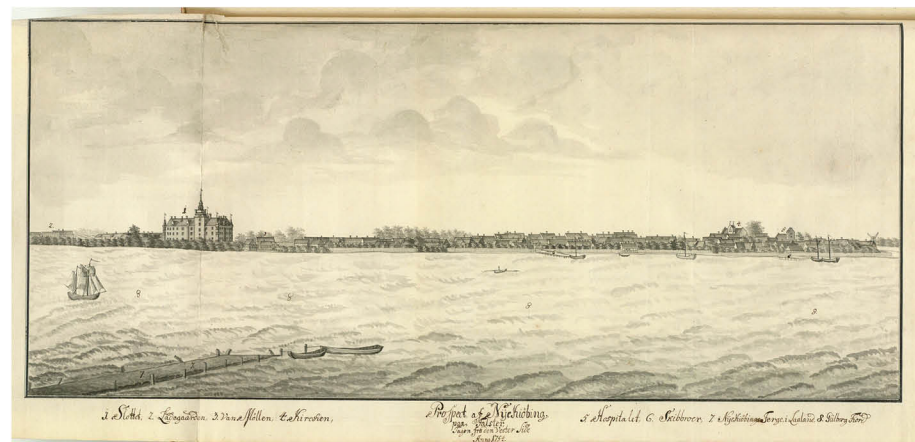 1. Slottet. 2. Ladegaarden. 3. Van Møllen. 4. Kirchen,
Prospect af Nyekiöbing,
paa Falster
Tagen fra den Vester Side
Anno
5. Hospitalet. 6. Skibbroer. 7 Nyekiöbings Færge i Laaland. 8. Gulborg Fiord
8
8
8
8